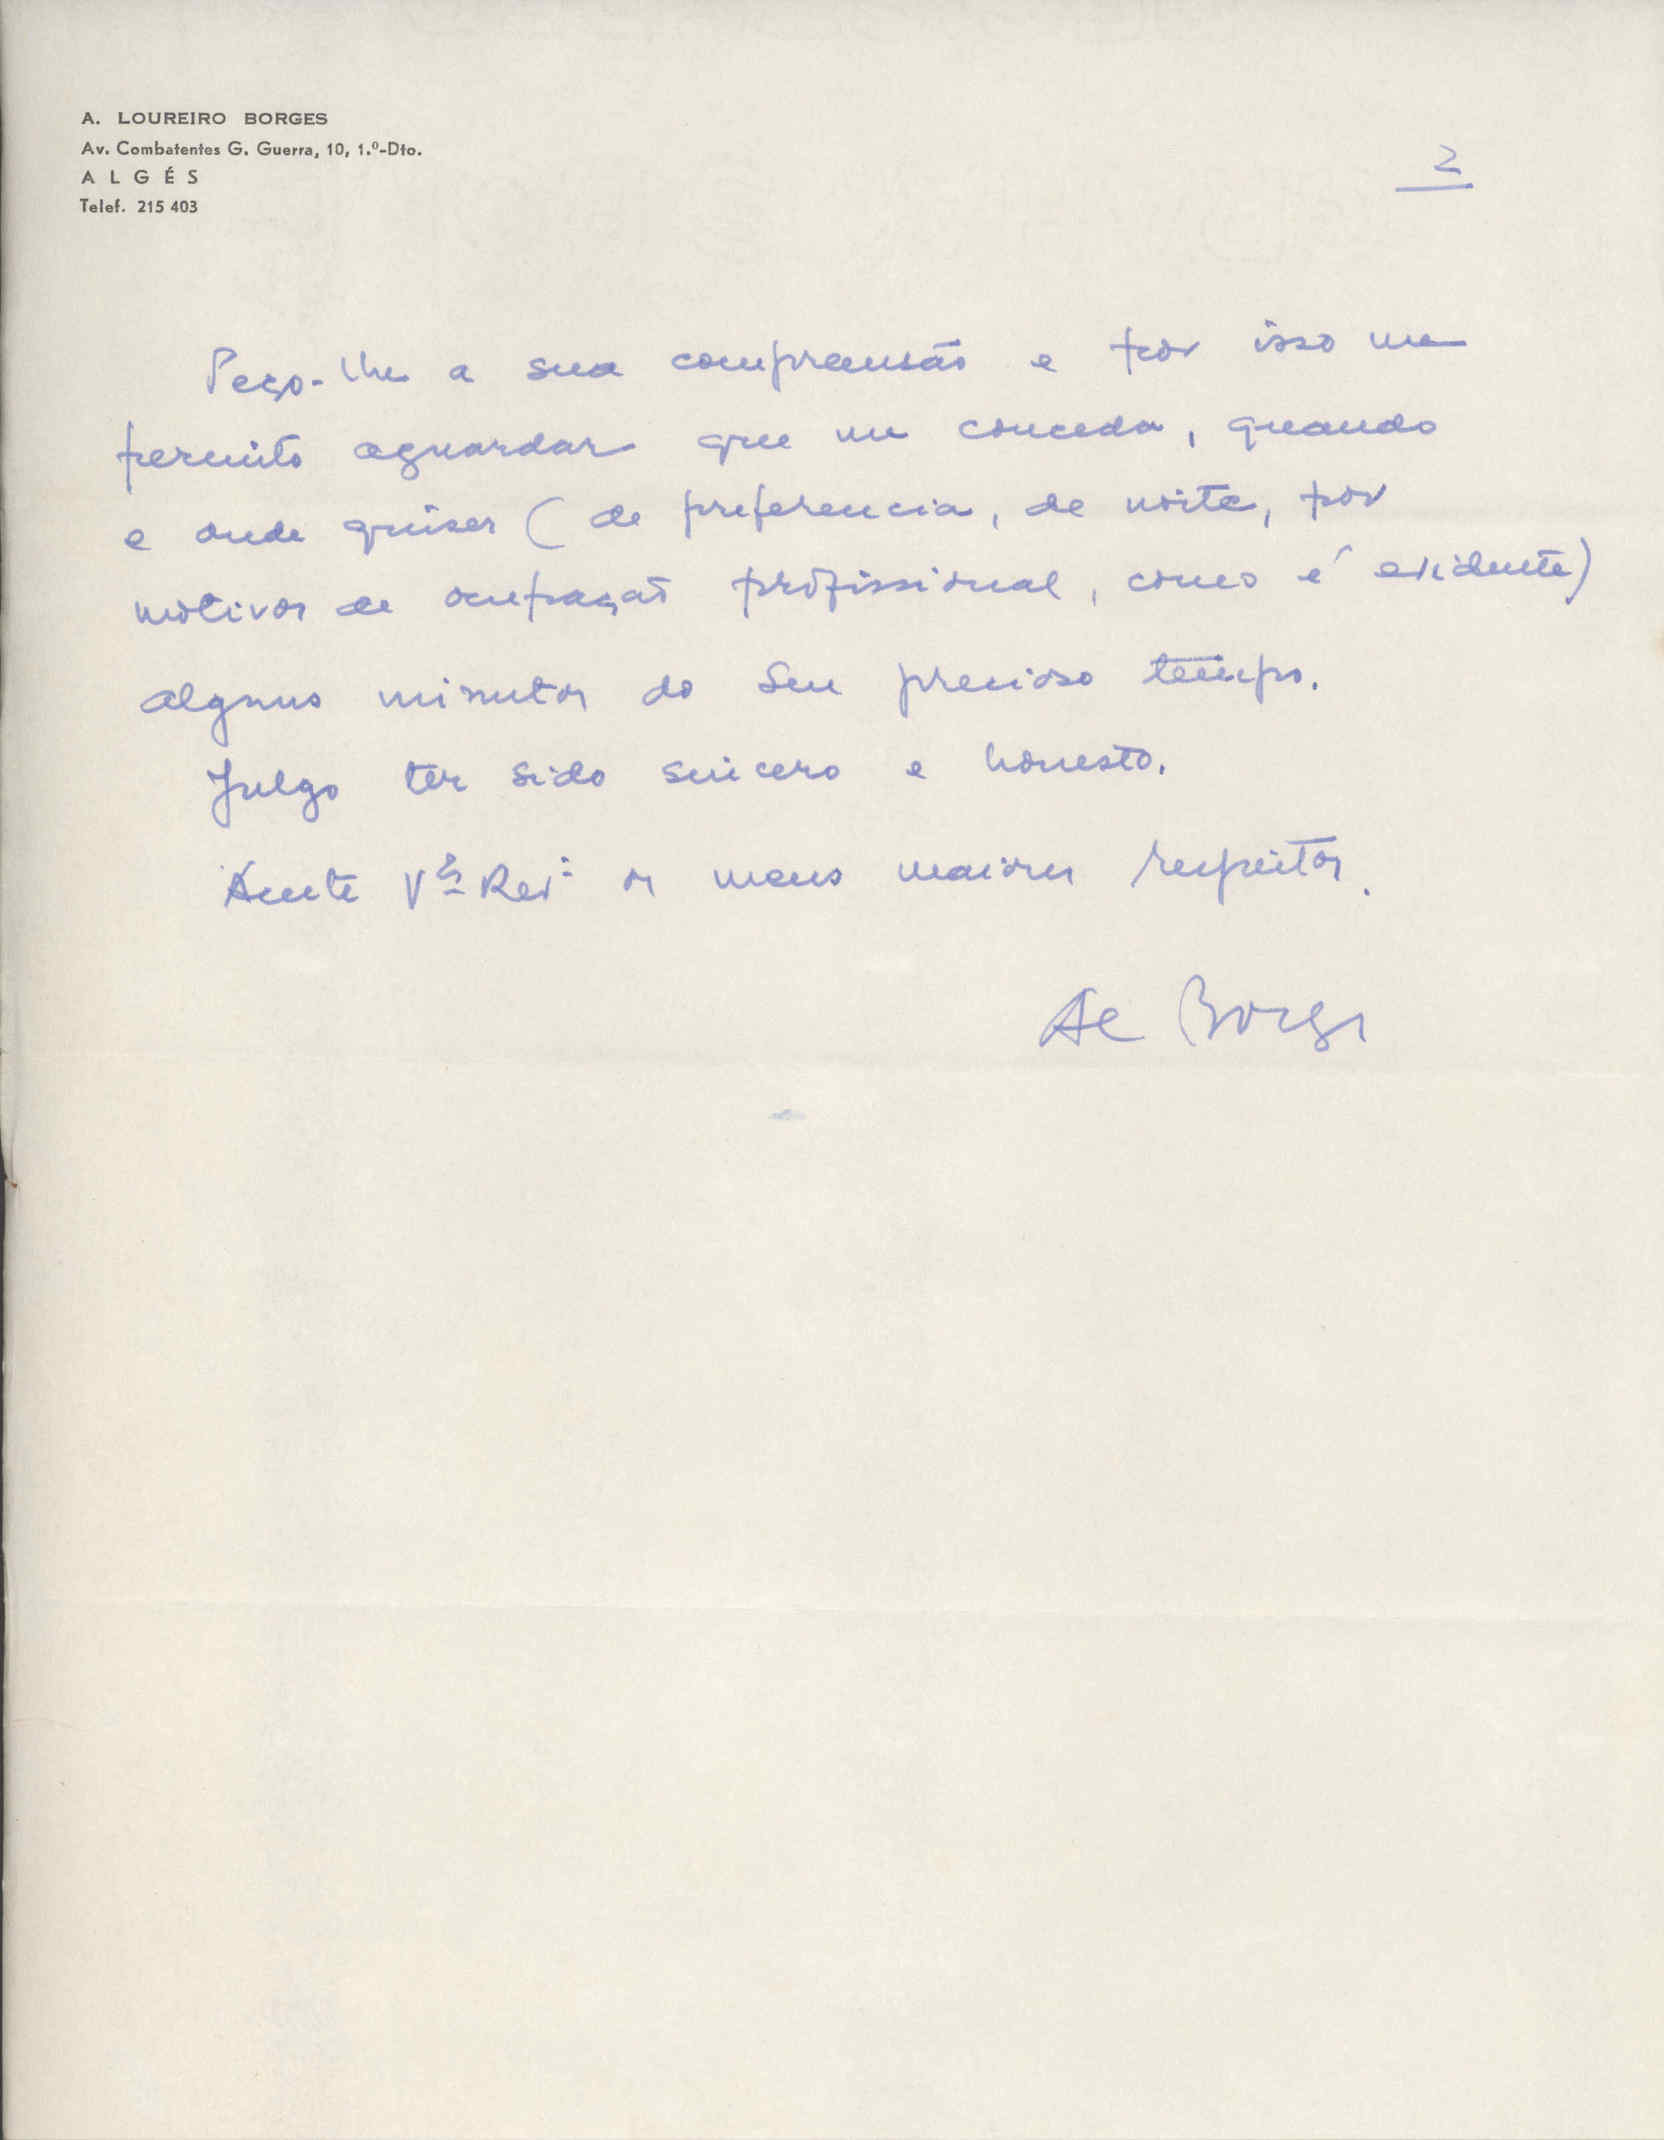 A. LOUREIRO BORGES
Av. Combatentes G. Guerra, 10, 1.º-Dto.
ALGÉS
Telef. 215 403
2
Peço-lhe a sua compreensão e por isso me
permito aguardar que me conceda, quando
e onde quiser (de preferencia, de noite, por
motivos de ocupação profissional, como é evidente)
alguns minutos do Seu precioso tempo.
Julgo ter sido sincero e honesto.
Aceite Vª Revª os meus maiores respeitos.
Borges